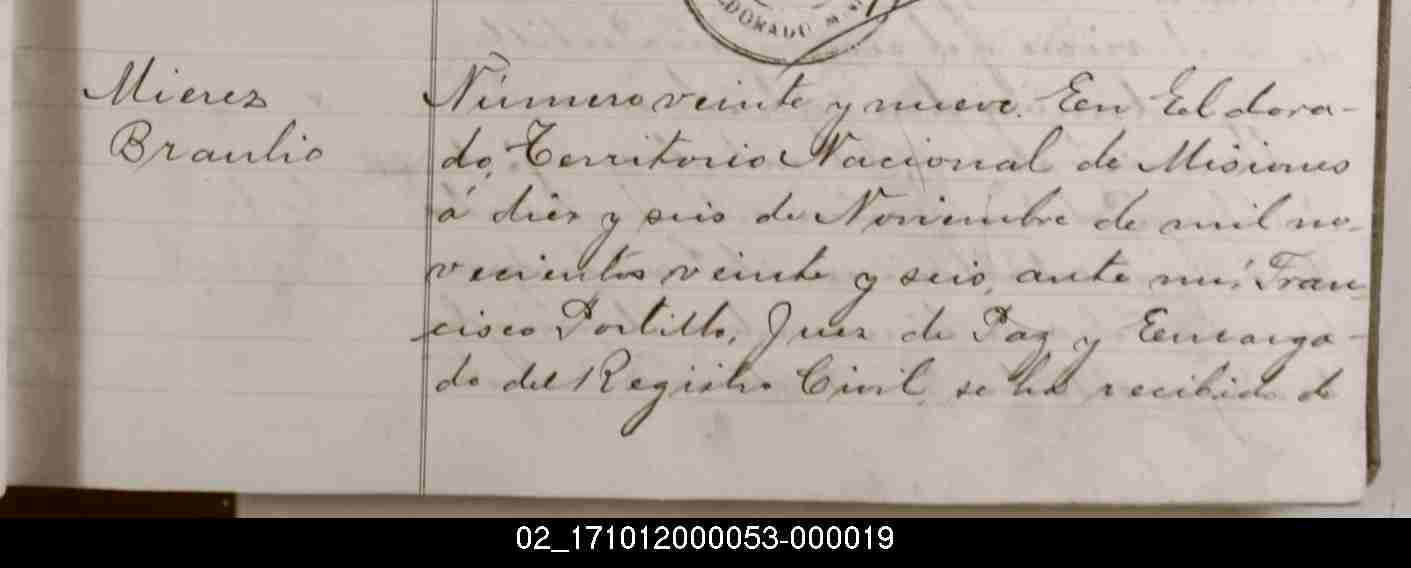 DORADO M
Mierez
Braulio
Número veinte y nueve. En Eldora-
do, Territorio Nacional de Misiones
á diez y seis de Noviembre de mil no-
vecientos veinte y seis, ante mí, Fran
cisco Portillo, Juez de Paz y Encarga-
do del Registro Civil, se ha recibido de
02_171012000053-000019